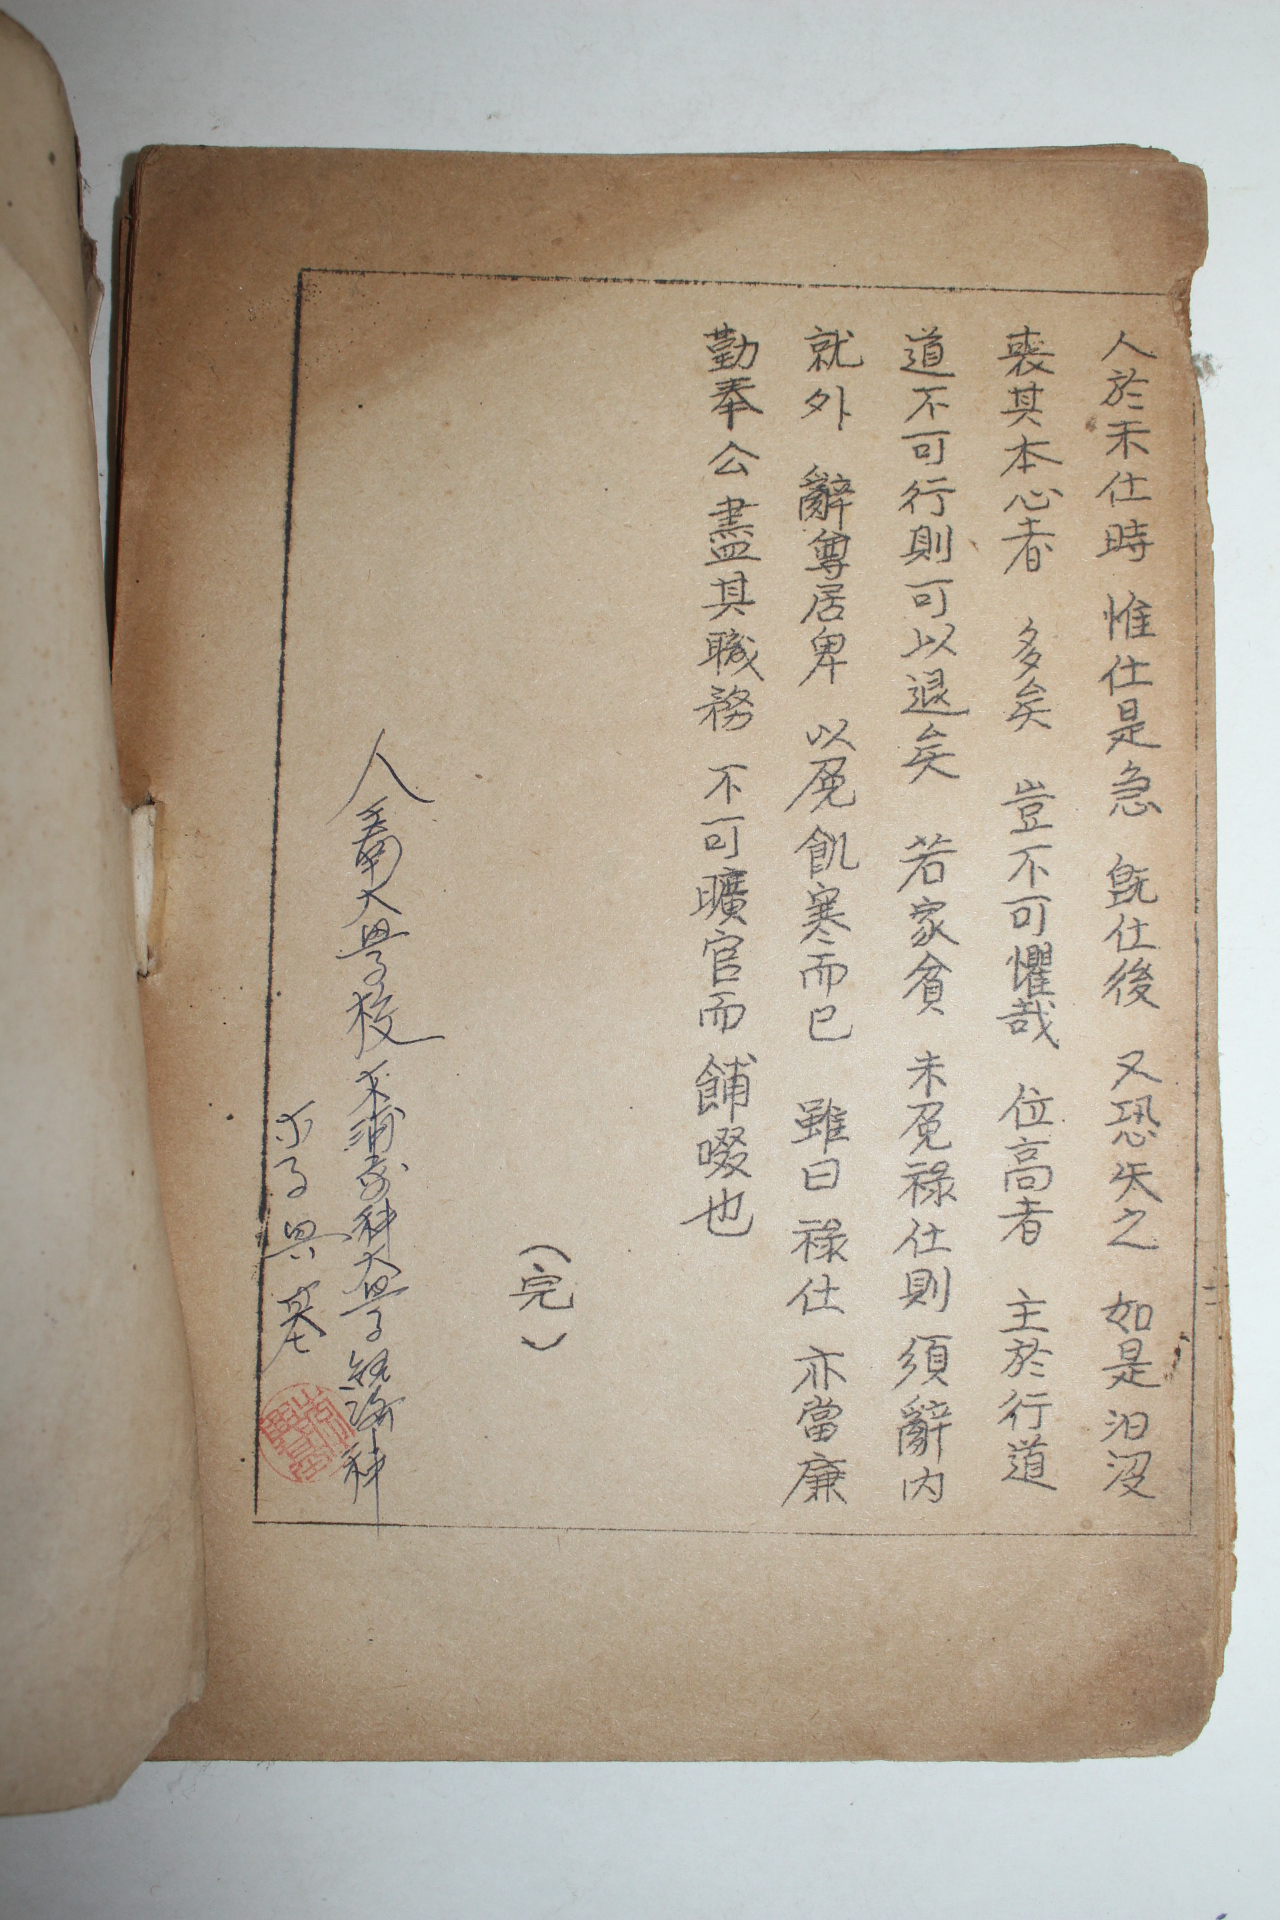 人於未仕時 惟仕是急 旣仕後 又恐失之 如是汨沒
喪其本心者 多矣 豈不可懼哉 位高者 主於行道
道不可行則可以退矣 若家貧 未免祿仕則 須辭內
就外 辭尊居卑 以免飢寒而已 雖曰 祿仕 亦當廉
勤奉公 盡其職務 不可曠官而 餔啜也
(完)
大學校 木浦 科大學 科